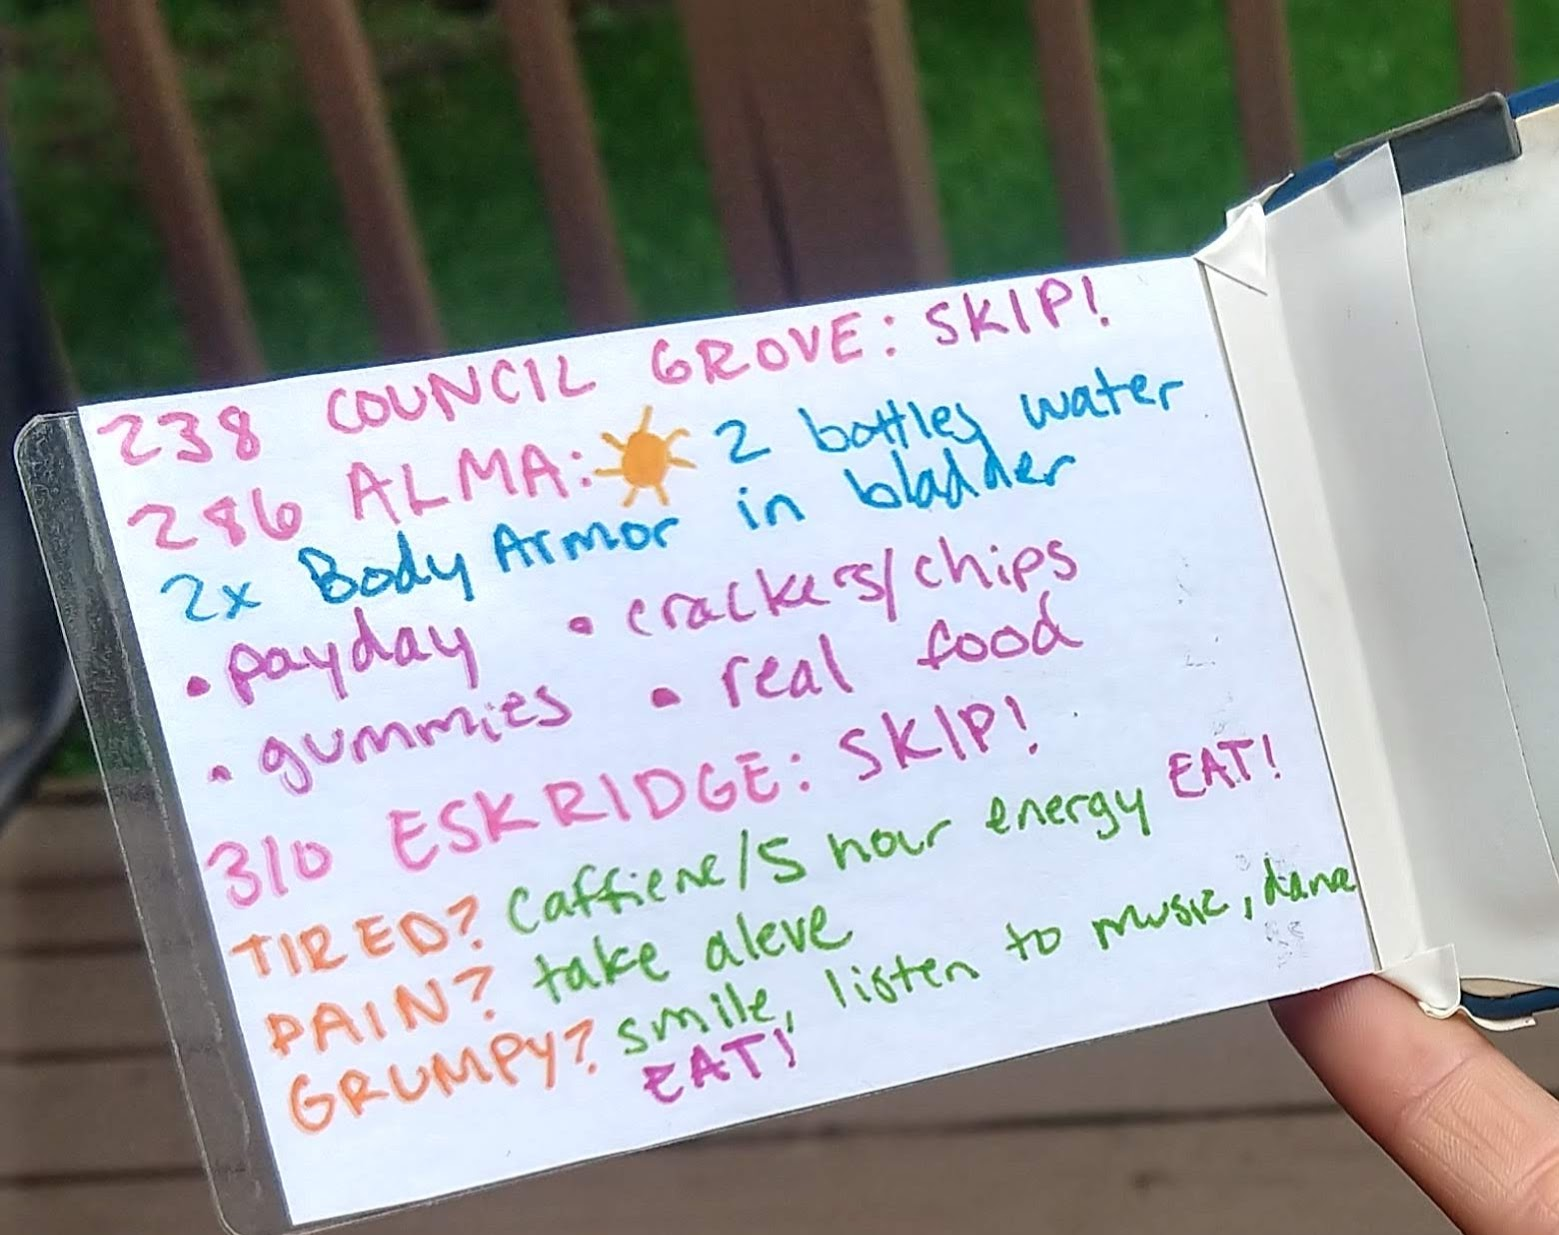 238 COUNCIL GROVE: SKIP!
286 ALMA: 2 bottles water
2x Body Armor in bladder
• payday • crackers/chips
• gummies • real food
310 ESKRIDGE: SKIP!
TIRED? caffiene/5 hour energy EAT!
PAIN? take aleve
GRUMPY? smile, listen to music, dance
EAT!